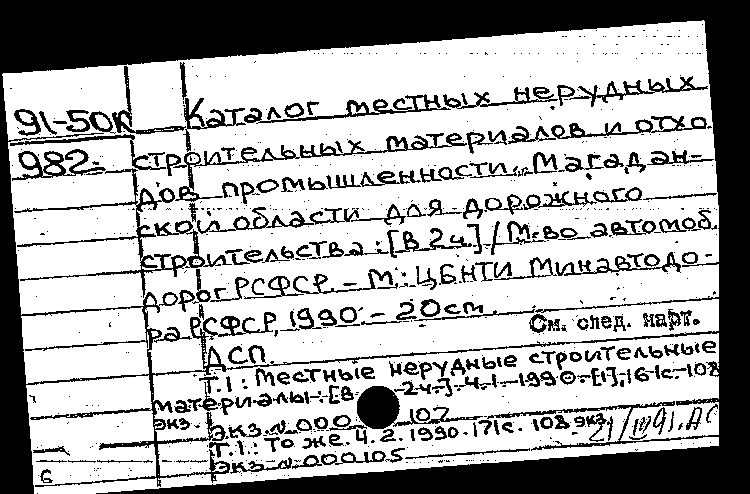 91-50К Каталог местных нерудных
982- строительных материалов и отхо
дов промышленности Магадан-
ской области для дорожного
строительства: [В 2 ч.] / М-во автомоб.
дорог РСФСР. - М.: ЦБНТИ Минавтодо-
ра РСФСР, 1990. - 20 см.
См. след. карт.
ДСП.
Т.1: Местные нерудные строительные
материалы: [В 2 ч.] Ч.1. 1990. [1], 161 с. 108
экз.
экз. № 000 107
Т.1: То же. Ч.2. 1990. 171 с. 108 экз.
экз. № 000105
21/III 91. АС
6